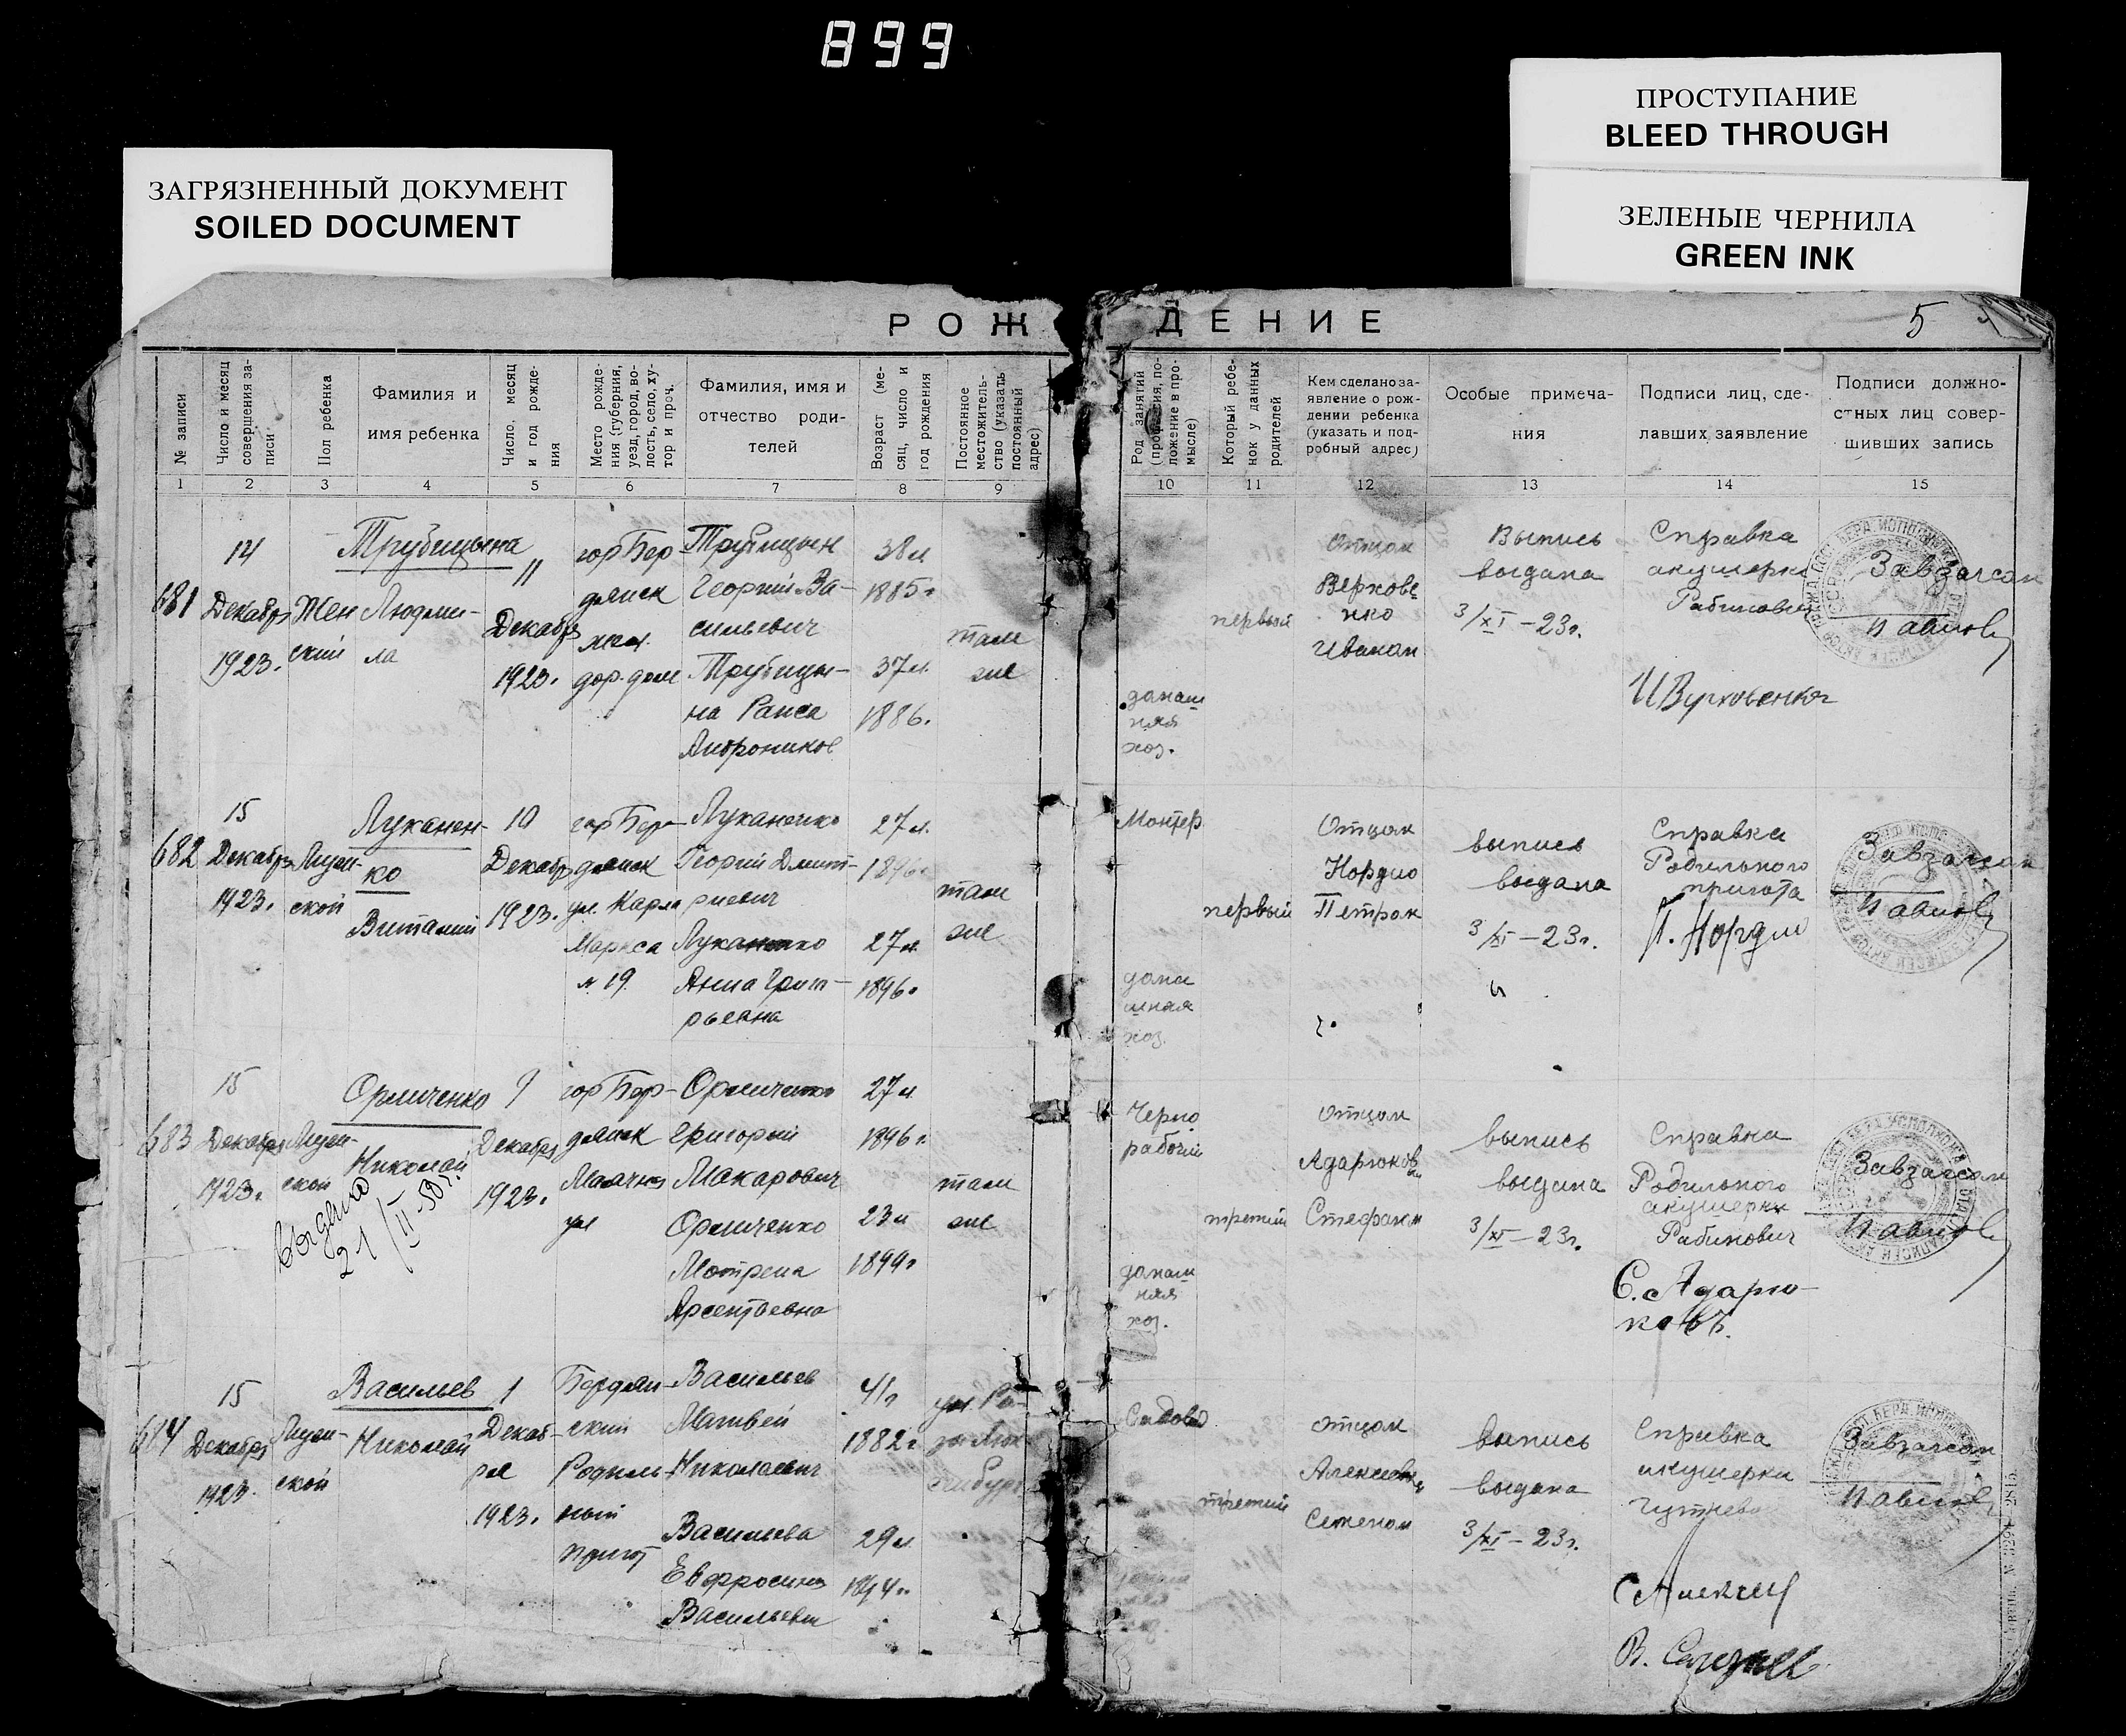 899
ПРОСТУПАНИЕ
BLEED THROUGH
ЗАГРЯЗНЕННЫЙ ДОКУМЕНТ
SOILED DOCUMENT
ЗЕЛЕНЫЕ ЧЕРНИЛА
GREEN INK
РОЖДЕНИЕ
5
№ записи
Число и месяц
совершения за-
писи
Пол ребенка
Фамилия и
имя ребенка
Число, месяц
и год рожде-
ния
Место рожде-
ния (губерния,
уезд, город, во-
лость, село, ху-
тор и проч.
Фамилия, имя и
отчество роди-
телей
Возраст (ме-
сяц, число и
год рождения
Постоянное
местожитель-
ство (указать
постоянный
адрес)
Род занятий
(профессия, по-
ложение в про-
мысле)
Который ребе-
нок у данных
родителей
Кем сделано за-
явление о рож-
дении ребенка
(указать и под-
робный адрес)
Особые примеча-
ния
Подписи лиц, сде-
лавших заявление
Подписи должно-
стных лиц совер-
шивших запись
1 2 3 4 5 6 7 8 9 10 11 12 13 14 15
681
14
Декабря
1923.
Жен
ский
Трубицына
Людми-
ла
11
Декабря
1923.
гор Бер
дянск
дор. дом
Трубицын
Георгий Ва-
сильевич
Трубицы-
на Раиса
38 л
1885 г
37 л.
1886.
там
же
домаш
няя
хоз.
первый
отцом
Верхове
нко
Иваном
Выпись
выдана
3/XI-23г.
Справка
акушерки
Рабинович
Завзагсом
682
15
Декабря
1923.
Муж-
ской
Луканен-
ко
Виталий
10
Декабря
1923.
гор Бер-
дянск
ул. Карла
Маркса
№ 19.
Луканенко
Георгий Дмит-
риевич
Луканенко
Анна Григ-
рьевна
27 л.
1896г
27 л.
1896г
там
же
Монтер
домаш
хоз.
первый
Отцом
Нордио
Петром
выпись
выдана
3/XI-23г.
Справка
Родильного
приюта
П. Нордио
Завзагсом
683
15
Декабря
1923г
Муж-
ской
Николай
выдано
21/II-50г.
Декабря
1923.
гор Бер-
дянск
ул
Григорий
Макарович
Мотрена
Арсентьевна
27 л.
1896 г.
23 л
1899г
там
же
Черно
рабочий
домаш
няя
хоз.
третий
отцом
Стефаном
выпись
выдана
3/XI-23г.
Справка
Родильного
акушерки
Рабинович
С. Адарю-
ковъ.
Завзагсом
684
15
Декабря
1923.
Муж-
ской
Васильев
Николай
1
Декаб-
ря
1923.
Бердян-
ский
Родиль-
ный
приют
Васильев
Матвей
Николаевич
Васильева
Евфросиния
Васильевна
41г
1882г
29 л.
1894г.
третий
отцом
Семеном
выпись
выдана
3/XI-23г.
Справка
акушерки
Завзагсом